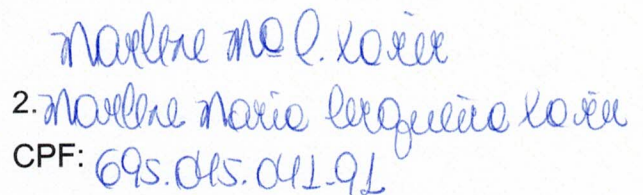 Marlene Mª C. Xavier
2. Marlene Maria Cerqueira Xavier
CPF: 695.045.041-91